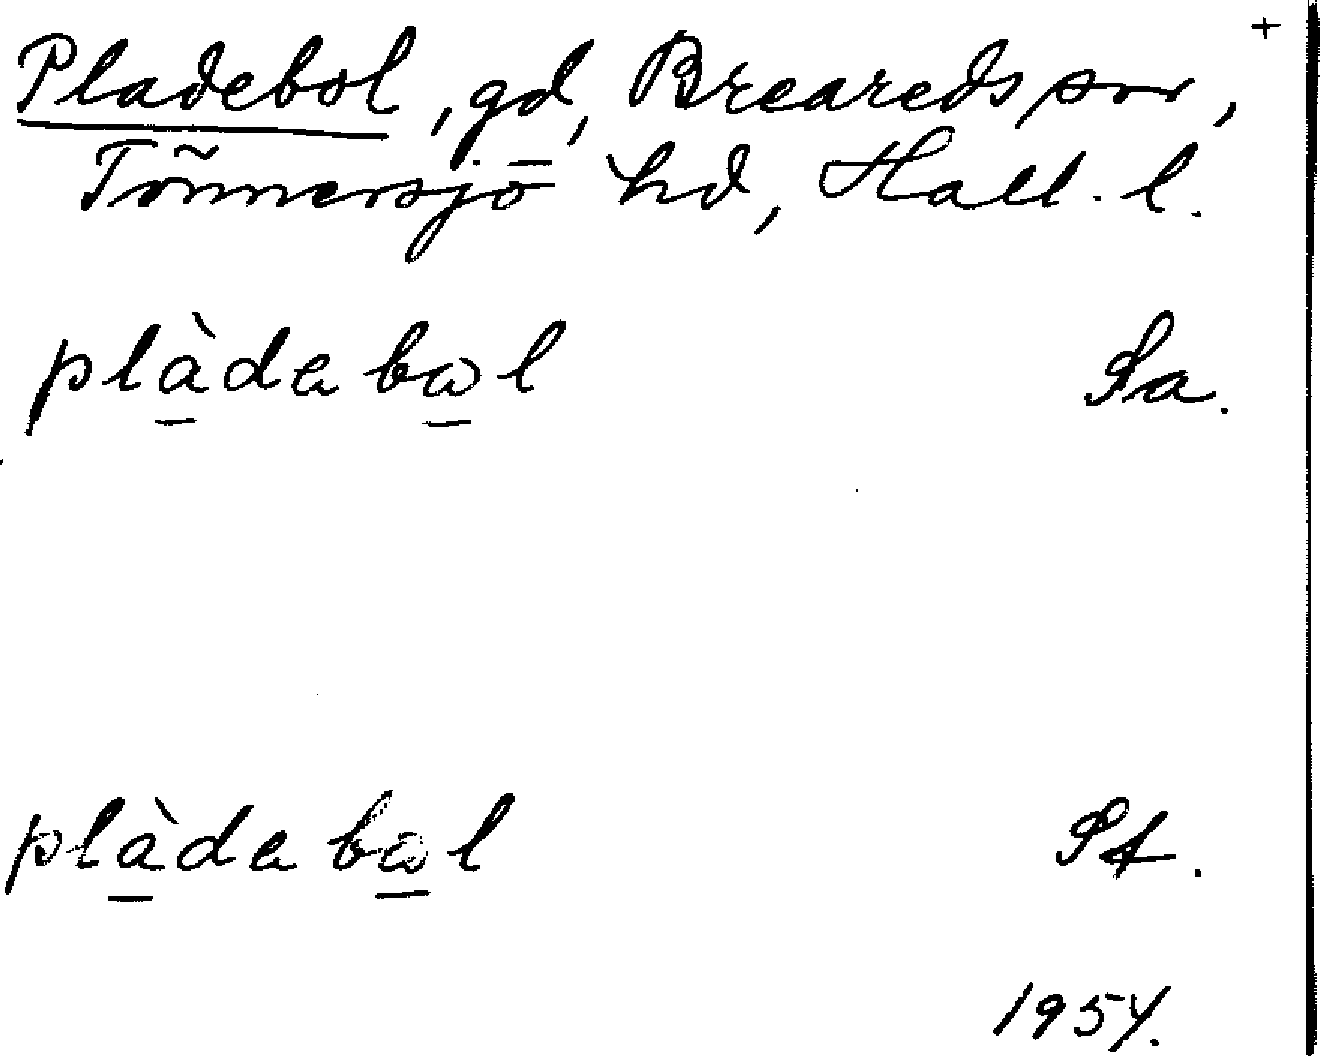 +
Pladebol, gd, Breareds sn,
Tönnersjö hd, Hall. l.
plàdabol Sa.
plàdabol St.
1954.